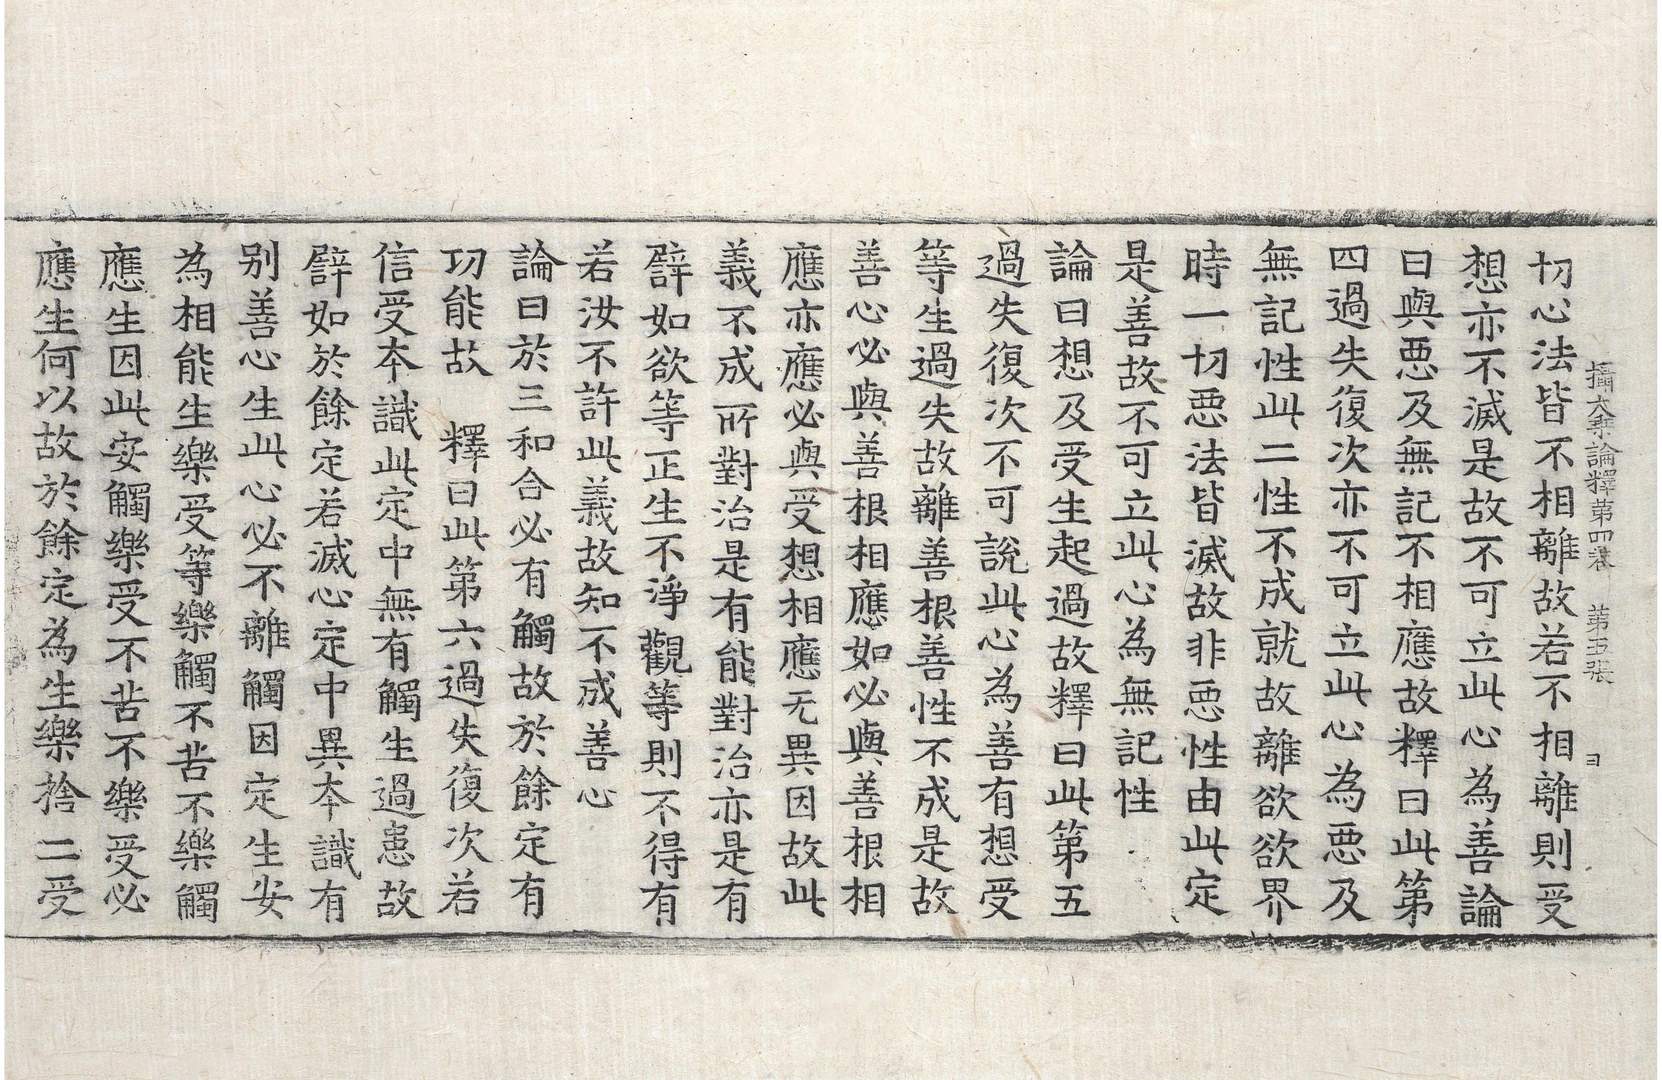 攝大乘論釋第四卷 第五張 ヨ
切心法皆不相離故若不相離則受
想亦不滅是故不可立此心為善論
曰與惡及無記不相應故釋曰此第
四過失復次亦不可立此心為惡及
無記性此二性不成就故離欲欲界
時一切惡法皆滅故非惡性由此定
是善故不可立此心為無記性
論曰想及受生起過故釋曰此第五
過失復次不可說此心為善有想受
等生過失故離善根善性不成是故
善心必與善根相應如必與善根相
應亦應必與受想相應无異因故此
義不成所對治是有能對治亦是有
譬如欲等正生不淨觀等則不得有
若汝不許此義故知不成善心
論曰於三和合必有觸故於餘定有
功能故 釋曰此第六過失復次若
信受本識此定中無有觸生過患故
譬如於餘定若滅心定中異本識有
別善心生此心必不離觸因定生安
為相能生樂受等樂觸不苦不樂觸
應生因此安觸樂受不苦不樂受必
應生何以故於餘定為生樂捨二受